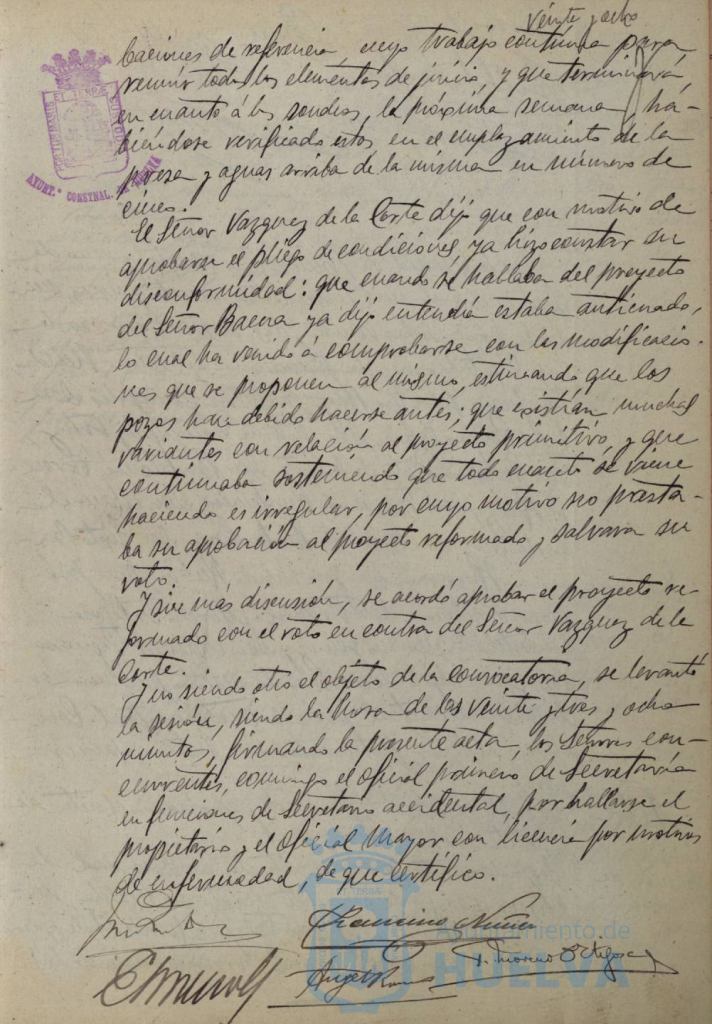 veinte y ocho
baciones de referencia, cuyo trabajo continúa para
reunir todos los elementos de juicio, y que terminará,
en cuanto á los sondeos, la próxima semana, ha-
biéndose verificado estos en el emplazamiento de la
presa y aguas arriba de la misma en número de
cinco.
El Señor Vazquez de la Corte dijo que con motivo de
aprobarse el pliego de condiciones ya hizo constar su
disconformidad: que cuando se hablaba del proyecto
del Señor Baena ya dijo entendia estaba anticuado,
lo cual ha venido á comprobarse con las modificacio-
nes que se proponen al mismo, estimando que los
pozos han debido hacerse antes; que existian muchas
variantes con relación al proyecto primitivo, y que
continuaba sosteniendo que todo cuanto se viene
haciendo es irregular, por cuyo motivo no presta-
ba su aprobación al proyecto reformado y salvava su
voto.
Y sin más discusión, se acordó aprobar el proyecto re-
formado con el voto en contra del Señor Vazquez de la
Corte.
Y no siendo otro el objeto de la convocatoria, se levantó
la sesión, siendo la hora de las veinte y tres y ocho
minutos, firmando la presente acta, los Señores con-
currentes, conmigo el oficial primero de Secretaría
en funciones de Secretario accidental, por hallarse el
propietario y el Oficial Mayor con licencia por motivos
de enfermedad, de que certifico.
Francisco Nuñez
F. Moreno Ortega
Angel
AYUNT.º CONSTNAL. DE HUELVA
Ayuntamiento de
HUELVA